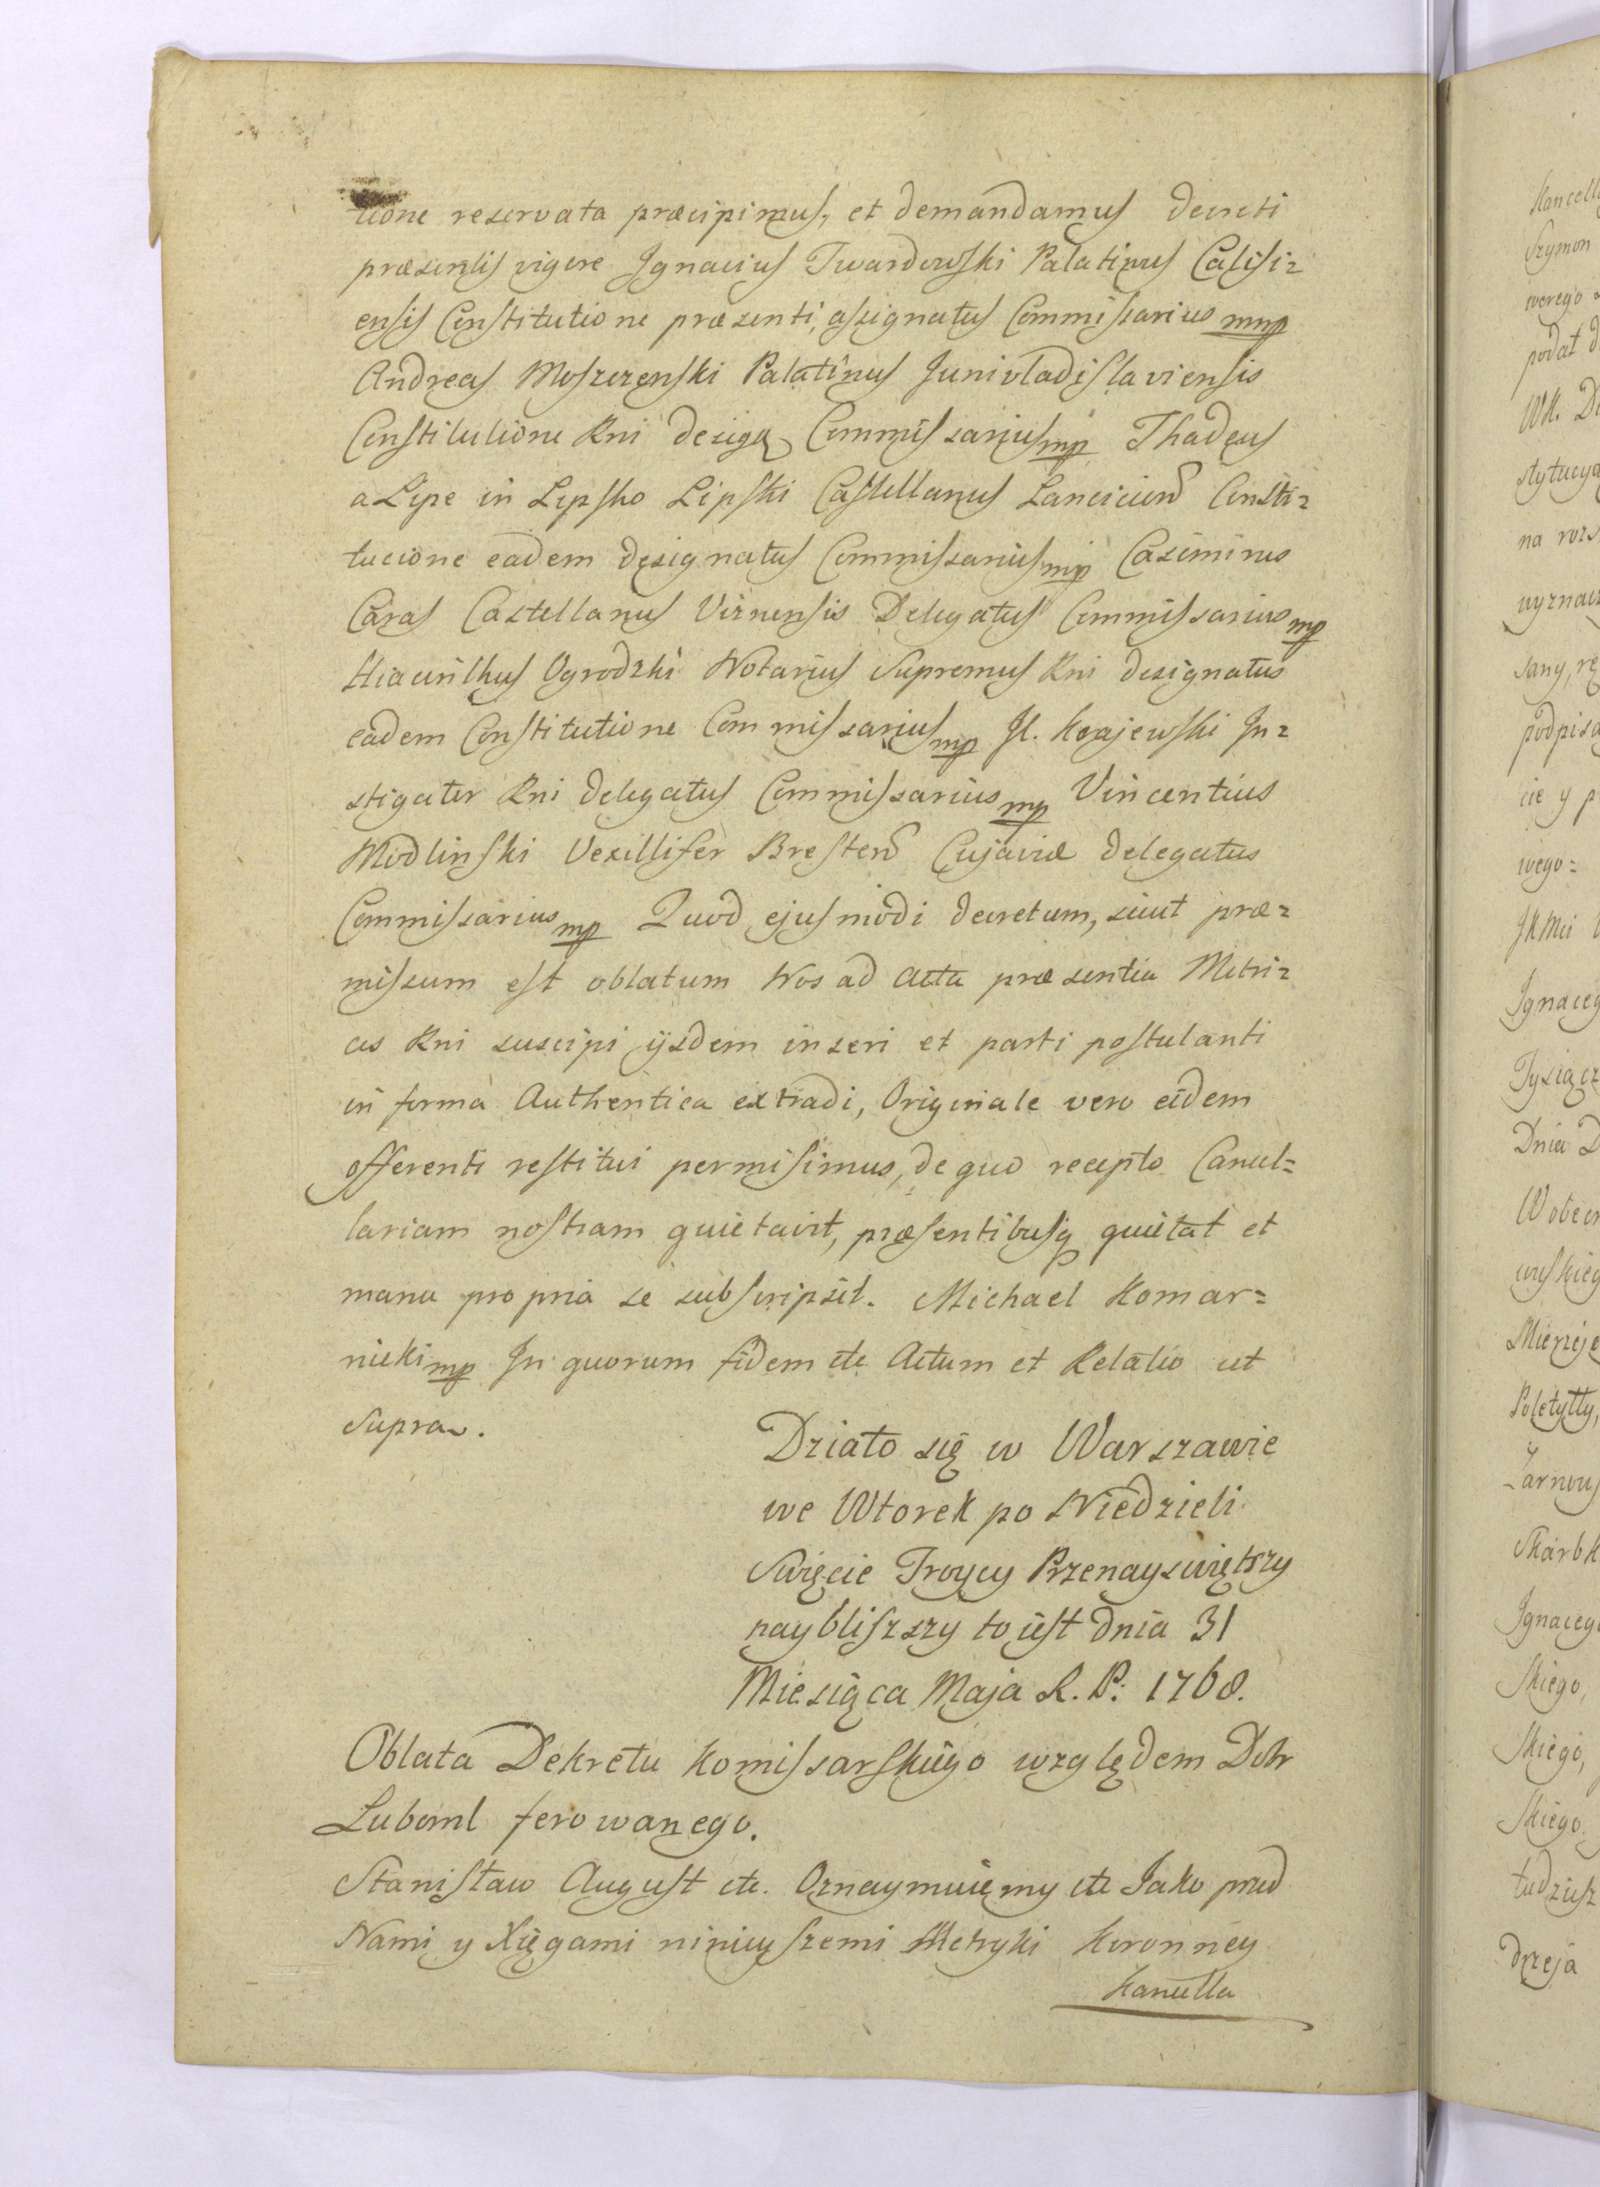 tione reservata præcipimus, et demandamus decreti
præsentis vigore Jgnacius Twardowski Palatinus Calisi=
ensis Constitutione præsenti assignatus Commissarius mp
Andreas Moszczenski Palatinus Junivladislaviensis
Constitutione Rni desigq Commissarius mp Thadeus
a Lipe in Lipsko Lipski Castellanus Lancicien Consti=
tucione eadem designatus Commissarius mp Casimirus
Caras Castellanus Viznensis Delegatus Commissarius mp
Hiacinthus Ogrodzki Notarius Supremus Rni designatus
eadem Constitutione Commissarius mp Jl. Krajewski Jn=
stigator Rni delegatus Commissarius mp Vincentius
Modlinski Vexillifer Bresten Cujaviæ delegatus
Commissarius mp Quod ejusmodi decretum, sicut præ=
missum est oblatum Nos ad acta præsentia Metri=
ces Rni suscipi ijsdem inseri et parti postulanti
in forma Authentica extradi, Originale vero eidem
offerenti restitui permisimus, de quo recepto Cancel=
lariam nostram quietavit, præsentibusq quietat et
manu propria se subscripsit. Michael Komar=
nicki mp Jn quorum fidem etc Actum et Relatio ut
Supra.
Działo się w Warszawie
we Wtorek po Niedzieli
Swięcie Troycy Przenayswiętszy
naybliszszy to iest dnia 31
Miesiąca Maja R. P. 1768.
Oblata Dekretu Komissarskiego względem Dobr
Luboml ferowanego.
Stanisław August etc. Oznaymuięmy etc Jako przed
Nami y Xięgami ninieyszemi Metryki Koronney
Kancella
Kancell
Szymon
werego
podał d
WK. D
stytucya
na rozs
wyznacz
sany, rę
podpisa
cie y p
wego=
JKMci
Jgnaceg
Tysiącz
Dnia D
W obecn
wskieg
Mierzeje
Poletyłły,
Żarnows
Skarbk
Jgnacego
skiego,
skiego,
skiego
tudziesz
drzeja